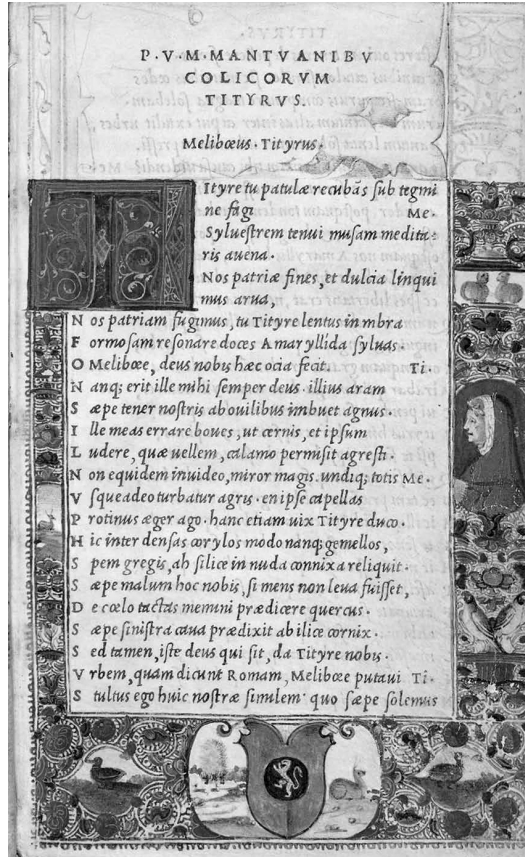 P. V. M. MANTVANI BV
COLICORVM
TITYRVS.
Meliboeus. Tityrus.
T Ityre tu patulæ recubãs sub tegmi
ne fagi Me.
Syluestrem tenui musam medita-
ris auena.
Nos patriæ fines, et dulcia linqui
mus arua,
N os patriam fugimus, tu Tityre lentus in mbra
F ormosam resonare doces Amaryllida syluas.
O Meliboee, deus nobis hæc ocia fecit. Ti.
N anq; erit ille mihi semper deus. illius aram
S æpe tener nostris ab ouilibus imbuet agnus.
I lle meas errare boues, ut cernis, et ipsum
L udere, quæ uellem, calamo permisit agresti.
N on equidem inuideo, miror magis. undiq; totis Me.
V sque adeo turbatur agris. en ipse capellas
P rotinus æger ago. hanc etiam uix Tityre duco.
H ic inter densas corylos modo nanq; gemellos,
S pem gregis, ah silice in nuda connixa reliquit.
S æpe malum hoc nobis, si mens non leua fuisset,
D e coelo tactas memini prædicere quercus.
S æpe sinistra caua prædixit ab ilice cornix.
S ed tamen, iste deus qui sit, da Tityre nobis.
V rbem, quam dicunt Romam, Meliboee putaui Ti.
S tultus ego huic nostræ similem. quo sæpe solemus